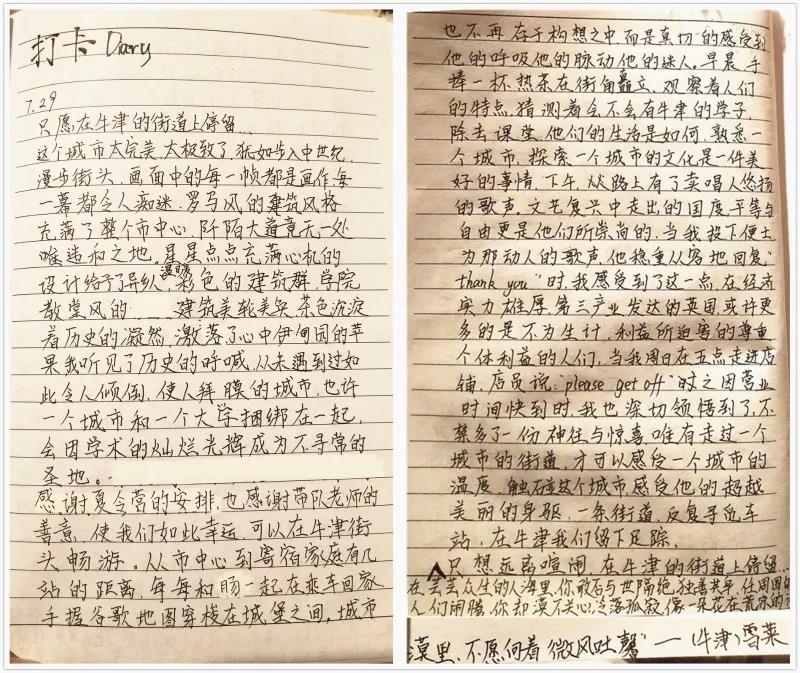 打卡 Diary
7.29
只愿在牛津的街道上停留...
这个城市太完美太极致了,犹如步入中世纪,
漫步街头,画面中的每一帧都是画作,每
一幕都令人痴迷,罗马风的建筑风格
充满了整个市中心,阡陌大道竟无一处
唯违和之地,星星点点充满心机的
设计给予了异乡温暖,彩色的建筑群,学院
教堂风的......建筑美轮美奂,茶色沉淀
着历史的凝然,激荡了心中伊甸园的苹
果,我听见了历史的呼喊,从未遇到过如
此令人倾倒,使人拜膜的城市,也许
一个城市和一个大学捆绑在一起,
会因学术的灿烂光辉成为不寻常的
圣地。
感谢夏令营的安排,也感谢带队老师的
善意,使我们如此幸运,可以在牛津街
头畅游。从市中心到寄宿家庭有几
站的距离,每每和肠一起在乘车回家,
手握谷歌地图穿梭在城堡之间,城市
也不再存于构想之中,而是真切的感受到
他的呼吸他的脉动他的迷人。早晨手
捧一杯热茶在街角矗立,观察着人们
的特点,猜测着会不会有牛津的学子,
除去课堂,他们的生活是如何,熟悉一
个城市,探索一个城市的文化是一件美
好的事情,下午,从路上有了卖唱人悠扬
的歌声,文艺复兴中走出的国度,平等与
自由更是他们所崇尚的,当我投下便士
为那动人的歌声,他稳重从容地回复"
thank you"时,我感受到了这一点,在经济
实力雄厚,第三产业发达的英国,或许更
多的是不为生计,利益所迫害的尊重
个体利益的人们,当我周日在五点走进店
铺,店员说:"please get off"时之因营业
时间快到时,我也深切领悟到了,不
禁多了一份神往与惊喜,唯有走过一个
城市的街道,才可以感受一个城市的
温度,触碰这个城市感受他的超越
美丽的身躯,一条街道,反复寻觅车
站,在牛津我们留下足踪,
只想远离喧闹,在牛津的街道上停留...
在芸芸众生的人海里,你敢否与世隔绝,独善其身,任周围的
人们闹腾,你却漠不关心,冷落,孤寂,像一朵花在荒凉的沙
漠里,不愿向着微风吐馨"——(牛津)雪莱